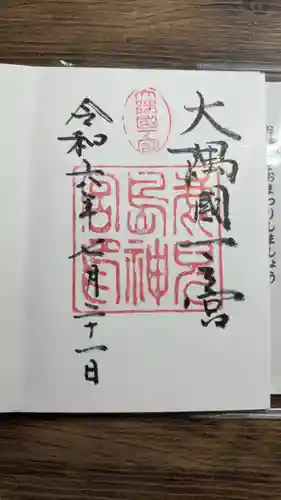 大隅國一宮
鹿兒
島神
宮印
令和六年七月二十一日
おまつりしましょう